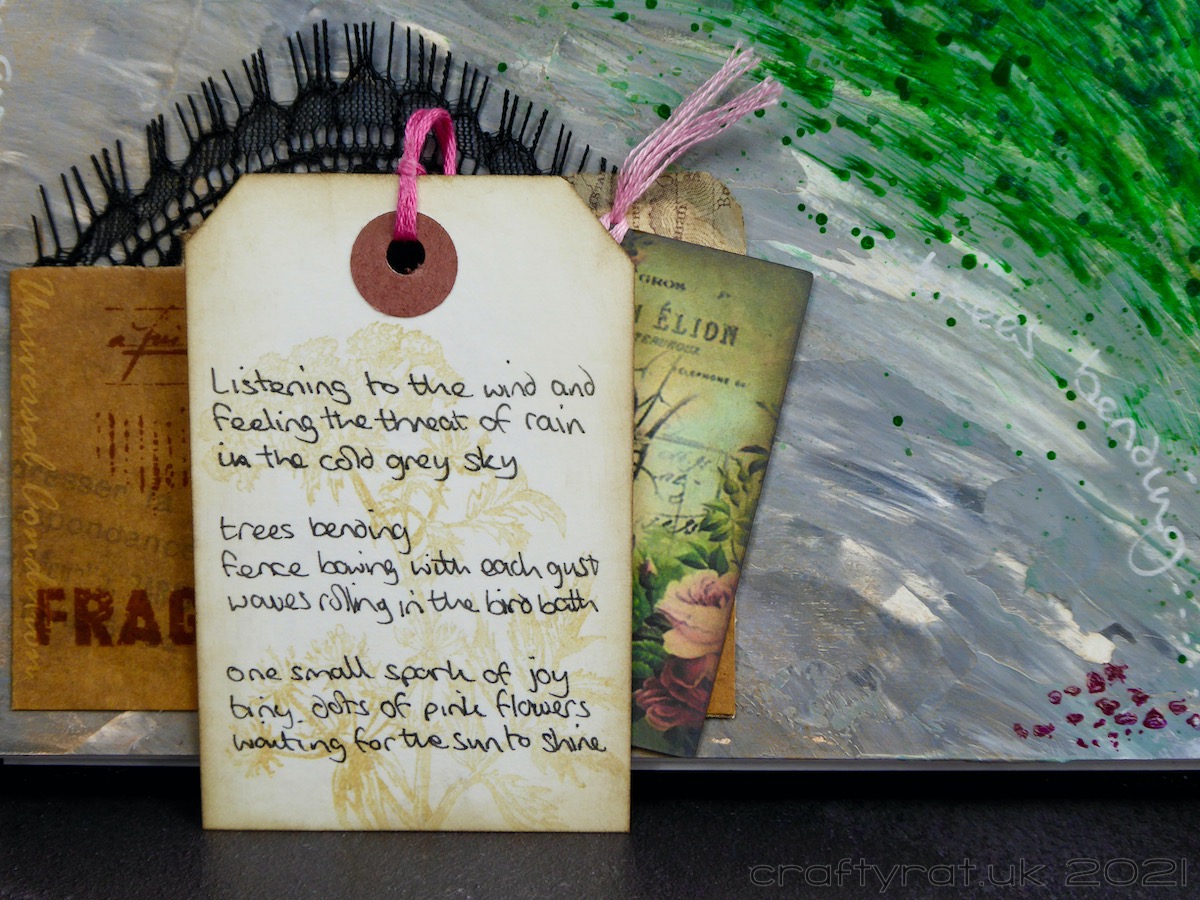 Listening to the wind and
feeling the threat of rain
in the cold grey sky
trees bending
fence bowing with each gust
waves rolling in the bird bath
one small spark of joy
tiny dots of pink flowers
waiting for the sun to shine
Universal
FRAG
GROS
N ÉLION
TELEPHONE
trees bending...
craftyrat.uk 2021